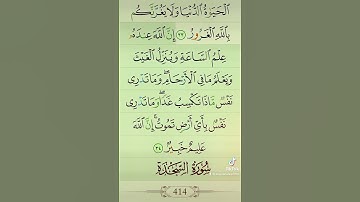 ٱلْحَيَوٰةُ ٱلدُّنْيَا وَلَا يَغُرَّنَّكُم
بِٱللَّهِ ٱلْغَرُورُ ٣٣ إِنَّ ٱللَّهَ عِندَهُۥ
عِلْمُ ٱلسَّاعَةِ وَيُنَزِّلُ ٱلْغَيْثَ
وَيَعْلَمُ مَا فِى ٱلْأَرْحَامِ ۖ وَمَا تَدْرِى
نَفْسٌ مَّاذَا تَكْسِبُ غَدًا ۖ وَمَا تَدْرِى
نَفْسٌۢ بِأَىِّ أَرْضٍ تَمُوتُ ۚ إِنَّ ٱللَّهَ
عَلِيمٌ خَبِيرٌۢ ٣٤
سُورَةُ السَّجْدَةِ
414